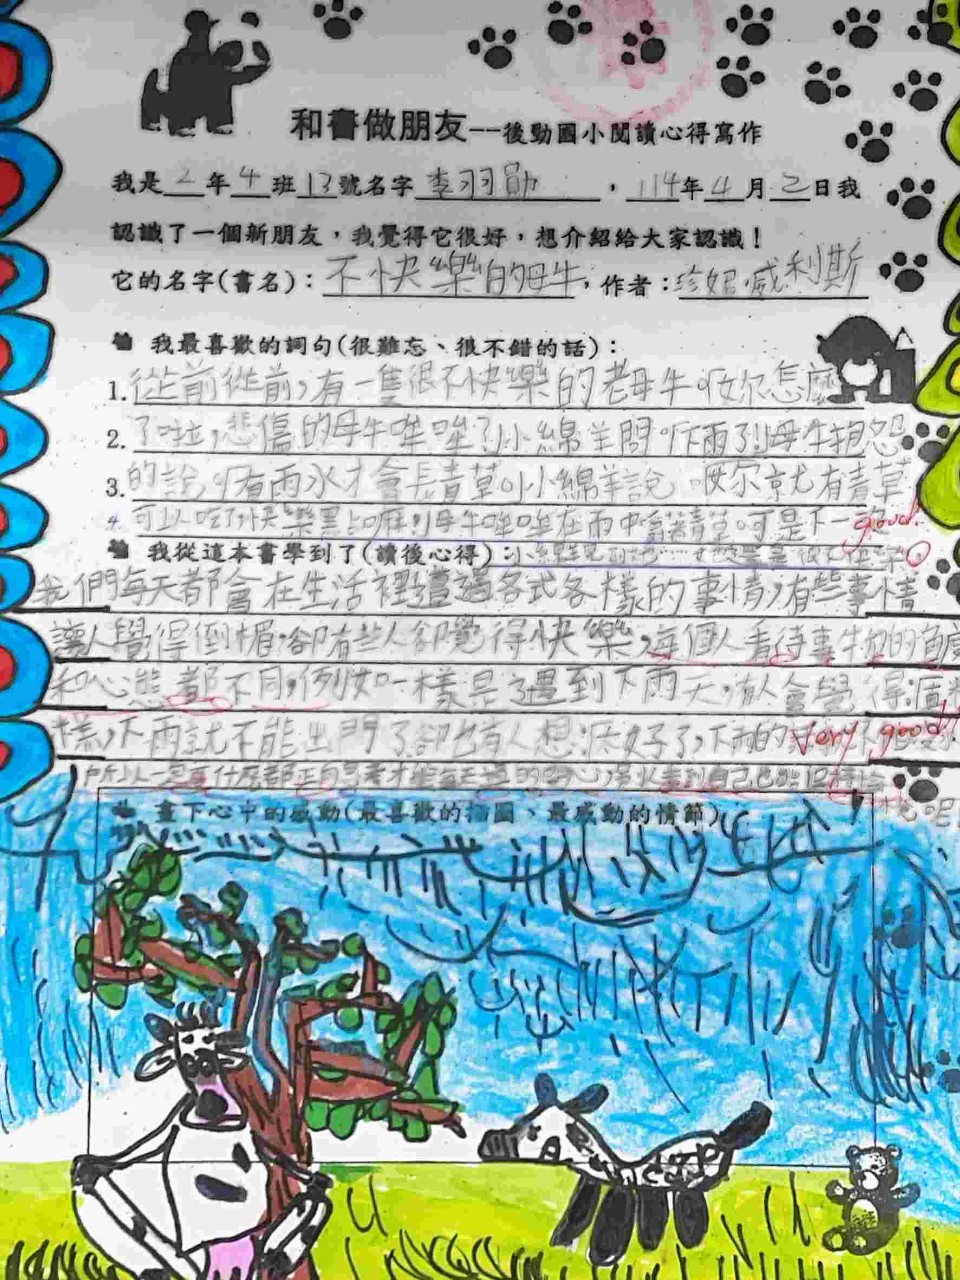 和書做朋友--後勁國小閱讀心得寫作
我是2年4班13號名字李羽勛,114年4月2日我
認識了一個新朋友,我覺得它很好,想介紹給大家認識!
它的名字(書名):不快樂的母牛,作者:珍妮.威利斯
我最喜歡的詞句(很難忘、很不錯的話):
1.從前從前,有一隻很不快樂的老母牛。「妳怎麼
2.了啦,悲傷的母牛哞哞?」小綿羊問「下雨了!」母牛抱怨
3.的說。「有雨水才會長青草」小綿羊說「妳就有青草
4.可以吃了快樂點嘛」母牛哞哞在雨中嚼著青草可是下一
good!
我從這本書學到了(讀後心得):
我們每天都會在生活裡遭遇各式各樣的事情,有些事情
讓人覺得倒楣,卻有些人卻覺得快樂,每個人看待事物的角度
和心態都不同,例如一樣是遇到下雨天,有人會覺得
樣,下雨就不能出門了卻也有人想:太好了,下雨的
Very good!
畫下心中的感動(最喜歡的插圖、最感動的情節)